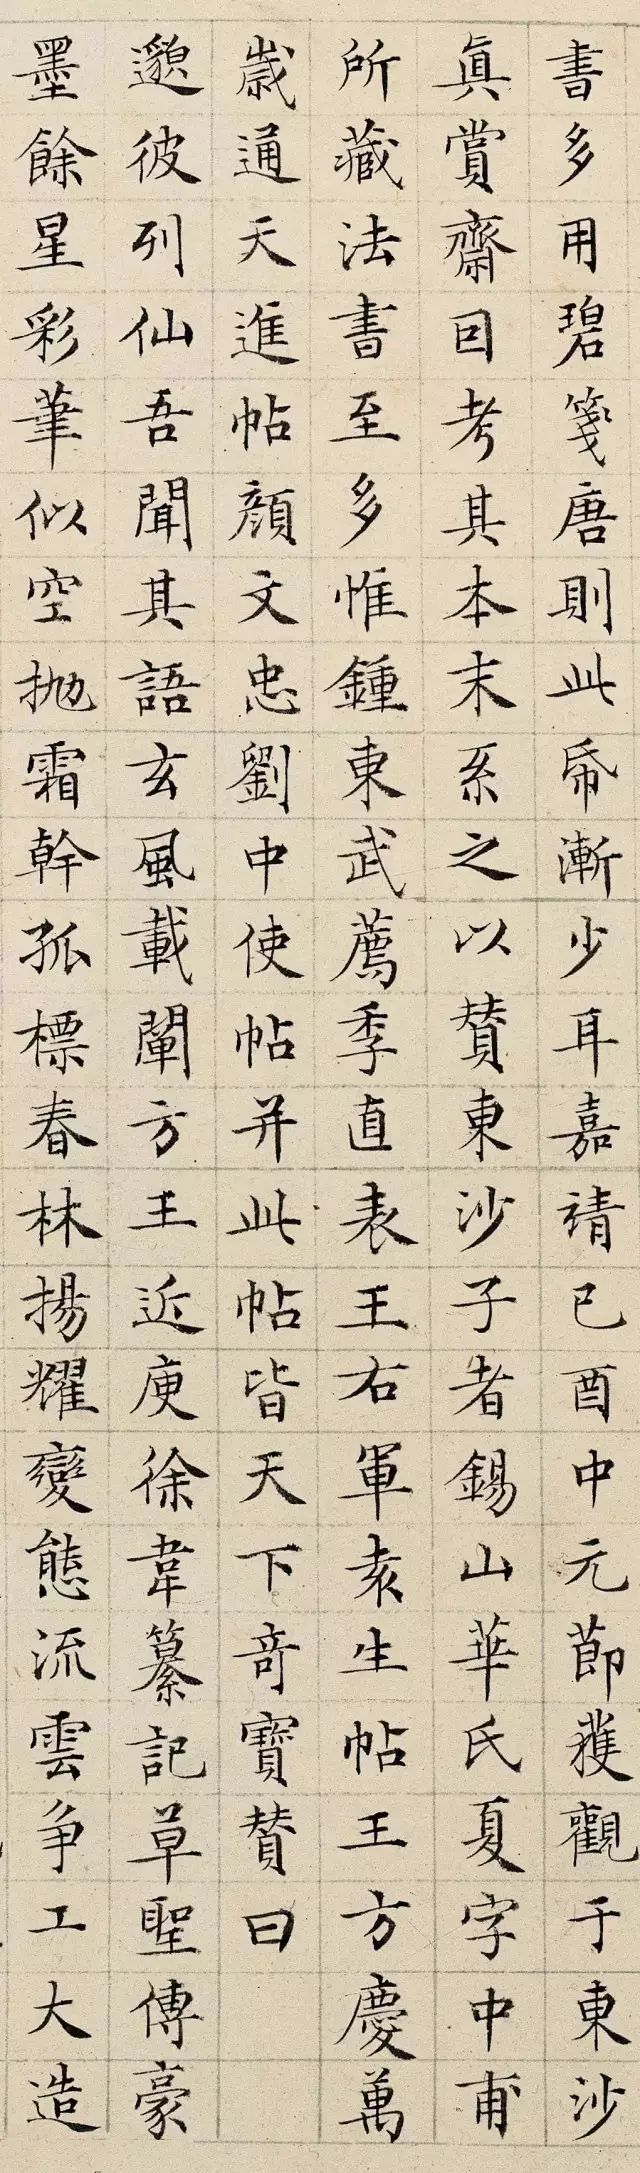 書多用碧箋唐則此帋漸少耳嘉靖己酉中元節獲觀于東沙
真賞齋因考其本末系之以賛東沙子者錫山華氏夏字中甫
所藏法書至多惟鍾東武薦季直表王右軍袁生帖王方慶萬
歳通天進帖顔文忠劉中使帖并此帖皆天下竒寳賛曰
邈彼列仙吾聞其語玄風載闡方王近庾徐韋纂記草聖傳豪
墨餘星彩筆似空抛霜幹孤標春林揚耀變態流雲争工大造